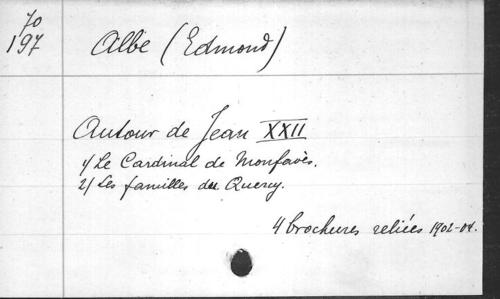 70
197
Albe (Edmond)
Autour de Jean XXII
1/ Le Cardinal de Monfavès.
2/ Les familles du Quercy.
4 brochures reliées 1902-04.